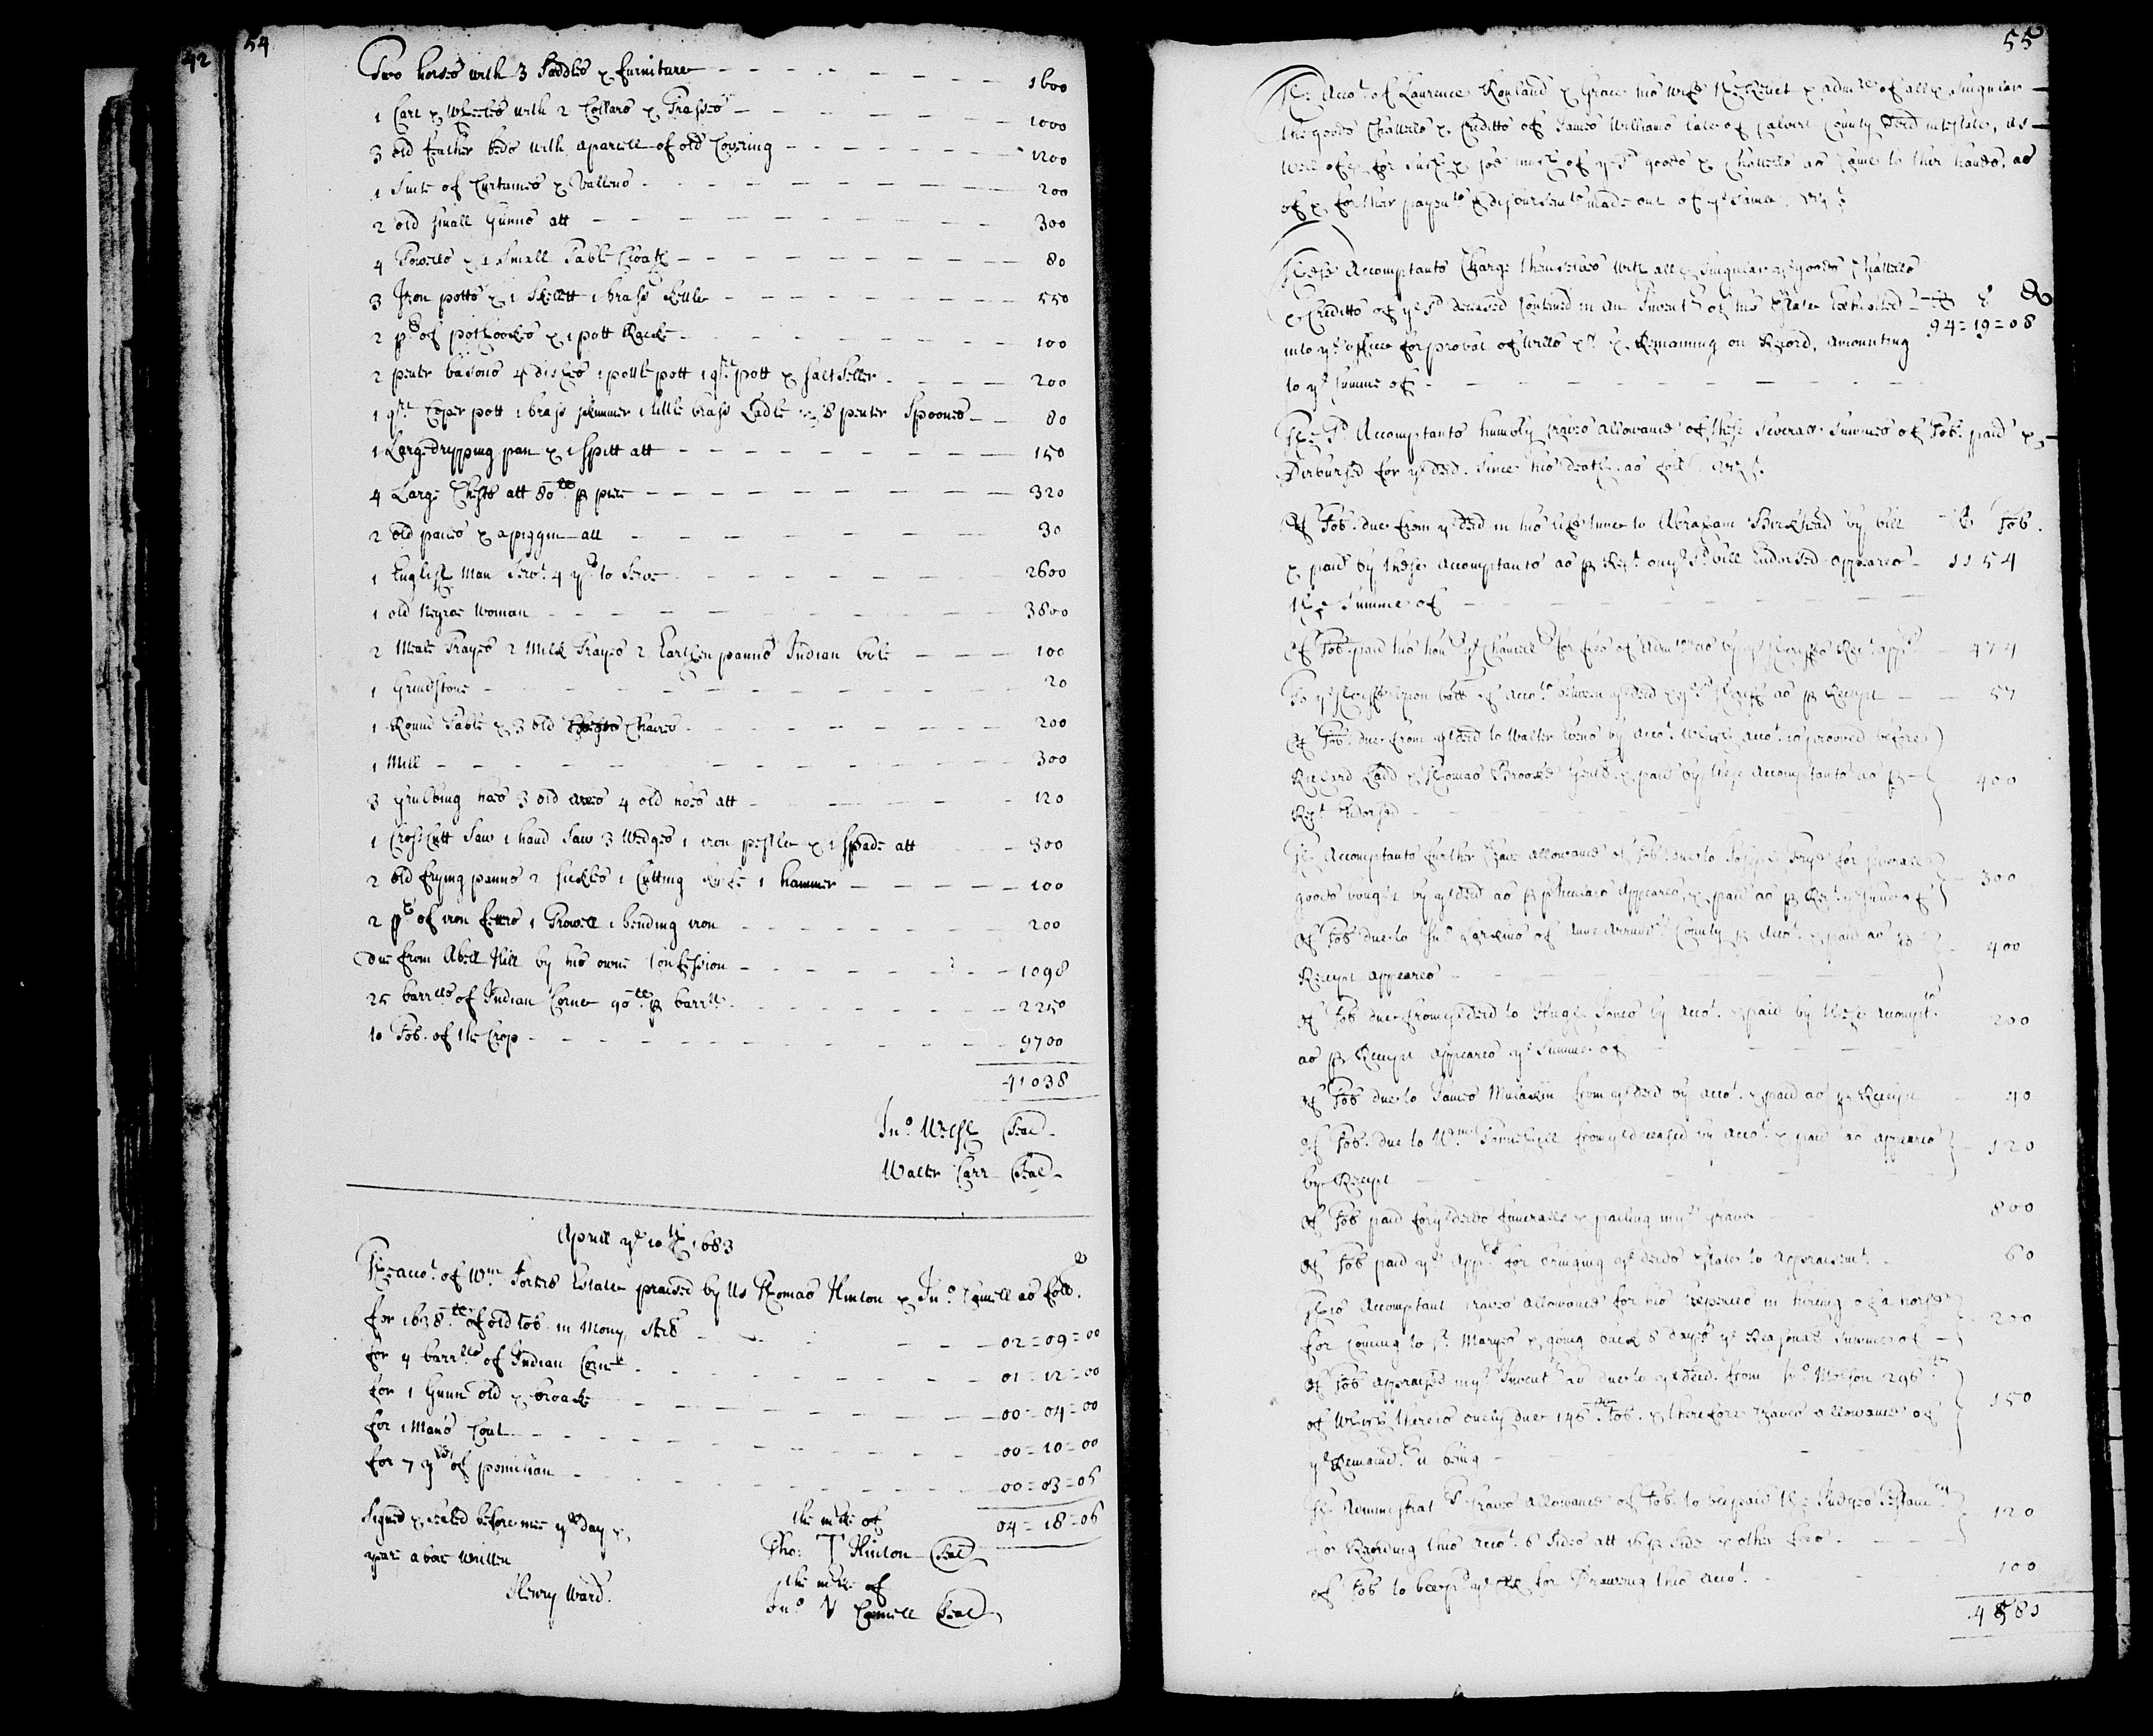 42
54
Two horses with 3 Saddles & furniture 1600
1 Cart & Wheeles with 2 Collars & Trasses 1000
3 old feather beds with a parcell of old Covering 1200
1 Suite of Curtaines & Vallens 200
2 old small Gunns att 300
4 Towells & 1 Small Table Cloath 80
3 Iron potts & 1 Skillett 1 brass kettle 550
2 pr of pothookes & 1 pott Rack 100
2 pewter basons 4 dishes 1 pottle pott 1 qrt pott & saltseller 200
1 qrt Coper pott 1 brass skimmer 1 little brass Ladle 8 pewter Spoones 80
1 Large dripping pan & 1 spitt att 150
4 Large Chests att 80 lb p piece 320
2 old pailes & a piggin att 30
1 English Man Servt 4 yrs to Serve 2600
1 old Negroe Woman 3800
2 Meale Trayes 2 Milk Trayes 2 Earthen panns Indian bole 100
1 Grindstone 20
1 Round Table & 3 old Chaires 200
1 Mill 300
3 grubbing hoes 3 old axes 4 old hoes att 120
1 Cross Cutt Saw 1 hand Saw 3 Wedges 1 iron pestle & 1 spade att 300
2 old frying panns 2 sickles 1 Cutting knife 1 hammer 100
2 pr of iron fetters 1 Trowell 1 bending iron 200
due from Abell Hill by his owne Confession 1098
25 barrlls of Indian Corne 90 lb p barrll 2250
to Tob. of the Crop 9700
41038
Jno Welsh Seal
Walter Carr Seal
Aprill ye 10th 1683
The accot of Wm Estate praised by Us Thomas Hinton & Jno as foll
for 1638 lb of old tob. in Mony 02=09=00
for 4 barrlls of Indian Corne 01=12=00
for 1 Gunn old & broake 00=04=00
for 1 Mans Coat 00=10=00
for 7 yds of 00=03=06
04=18=06
Signed & sealed before mee ye day &
yeare above Written
Henry Ward.
the mke of
Tho: T Hinton Seal
the mke of
Jno V Seal
55
The Accot of Laurence Rowland & Grace his wife & admrs of all & Singular
the goods Chattells & Creditts of James Williams late of Calvert County Decd intestate, as
well of & for such & soe much of ye sd goods & Chattells as Came to their hands, as
of & for their paymts & disbursemts made out of ye same. vizt
These Accomptants Charge themselves with all & Singular ye goods Chattells
& Creditts of ye sd deceased Contained in an Inventy of his Estate Exhibited
into ye office for probat of Wills &c & Remaining on Record, amounting 94=19=08
to ye summe of
The sd Accomptants humbly craves allowance of these severall summes of Tob. paid &
Disbursed for ye decd. since his death as foll. vizt
Of Tob. due from ye decd in his life time to Abraham Birkhead by bill lb Tob.
& paid by these Accomptants as p Rect on ye sd bill Endorsed appeares 1154
The Summe of
Of Tob. paid his honr ye Chancellr for fees of Admcon as by ye sheriffs Rect appr 474
To ye Sheriffe upon ball of Accots between ye decd & ye sd Sheriff as p Receipt 57
Of Tob. due from ye decd to Walter by Accot. Which Accot. is prooved before
Richard Ladd & Thomas Brooke Gentl. & paid by these Accomptants as p 400
Rect Endorsed
The Accomptants further Crave allowance of Tob. due to for severall
goods bought by ye decd as p appeares & paid as p Rect ye summe of 300
Of Tob due to Jno Larkins of Anne Arrundl County p Accot. & paid as p 400
Receipt appeares
Of Tob due from ye decd to Hugh Jones by Accot. & paid by these Accompts.
as p Receipt appeares ye Summe of 200
Of Tob due to James from ye decd by Accot. & paid as p Receipt 40
Of Tob. due to Wm from ye deceased by Accot & paid as appeares 120
by Receipt
Of Tob paid for ye decds funerall & paling in ye grave 800
Of Tob paid ye Apprs for bringing ye decds Estate to Appraismt. 60
This Accomptant craves allowance for his expences in hireing of a horse
for Coming to St. Maryes & going back 8 days ye Reasonable summe of 200
Of Tob appraised in ye Inventy as due to ye decd. from 296 lb
of Which there is onely due 146 lb Tob. & therefore Craves allowance of 150
ye Remaindr it being
The Administratrs Craves allowance of Tob. to bee paid the Judges
for Recording this accot. 6 sides att 16 p side & other fees. 120
Of Tob to bee pd ye for Drawing this Accot. 100